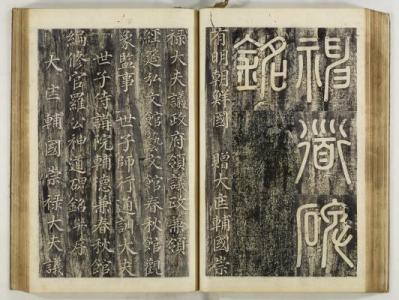 神道碑
銘
有明朝鮮國 贈大匡輔國崇
祿大夫議政府領議政兼領
經筵弘文館藝文館春秋館觀
象監事 世子師行通訓大夫
世子侍講院輔德兼春秋館
編修官羅公神道碑銘幷序
大匡輔國崇祿大夫議